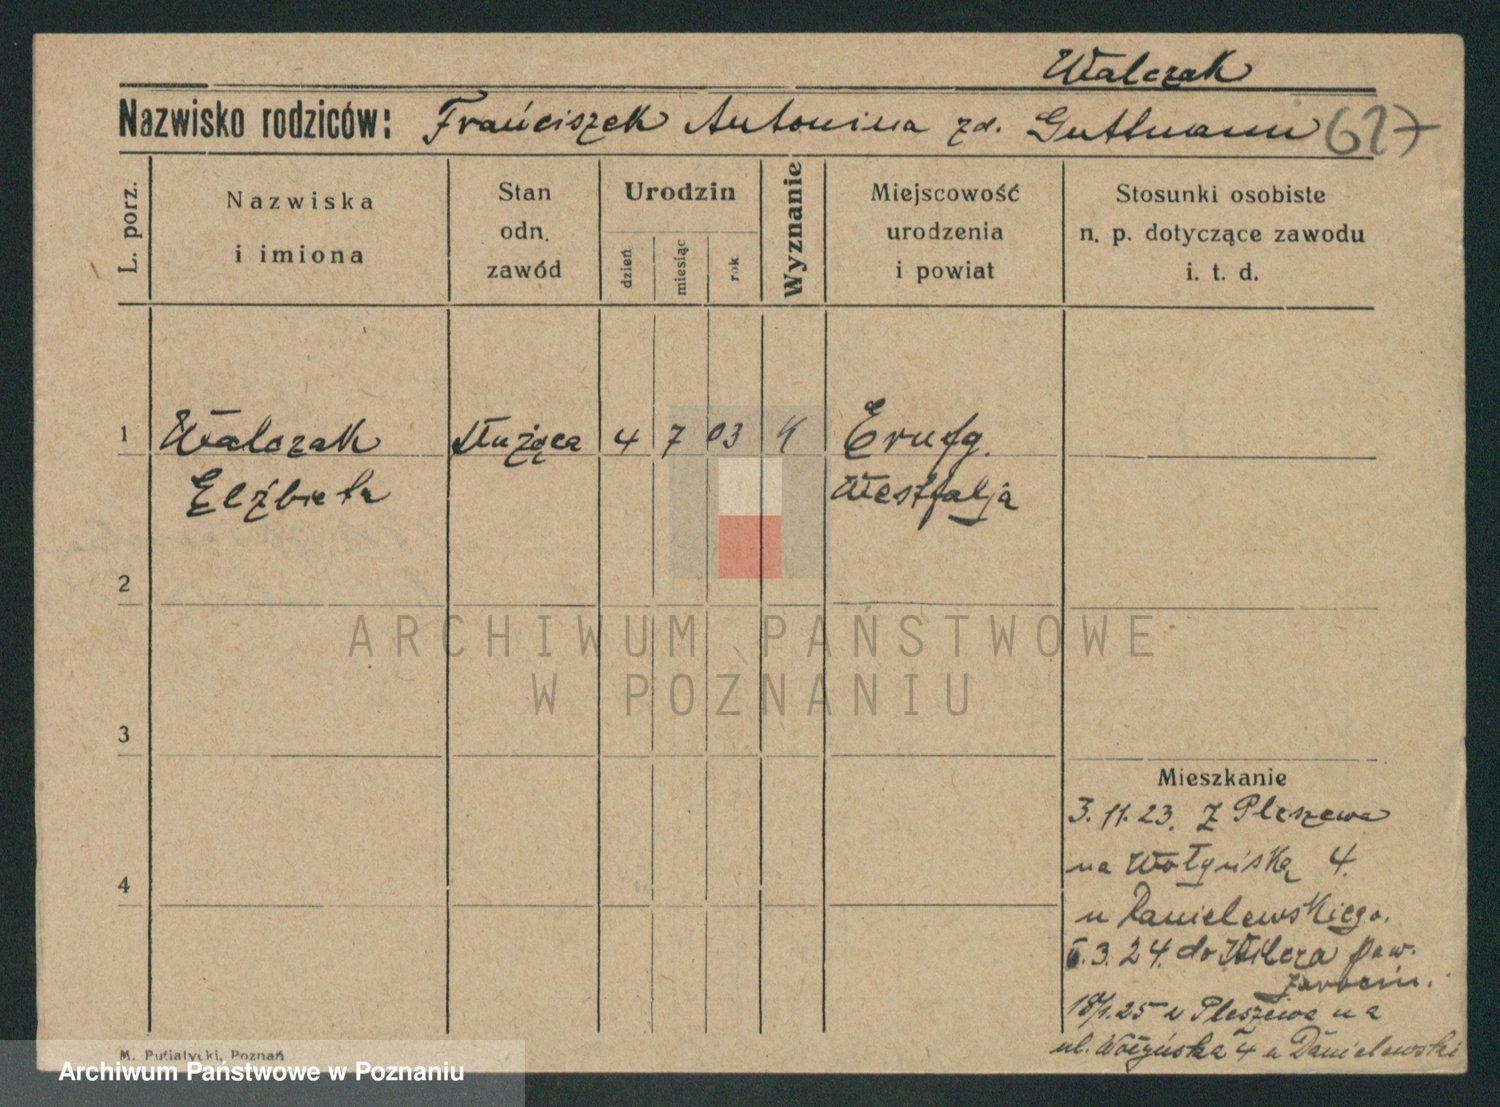 Walczak
Nazwisko rodziców: Franciszek Antonina zd. Guttmann 617
L. porz.
Nazwiska
i imiona
Stan
odn.
zawód
Urodzin
dzień
miesiąc
rok
Wyznanie
Miejscowość
urodzenia
i powiat
Stosunki osobiste
n. p. dotyczące zawodu
i. t. d.
1 Walczak służąca 4 7 03 K
Elżbieta Westfalja
2
3
4
Mieszkanie
3. 11. 23. Z Pleszewa
na Wołyńską 4.
u Danielewskiego.
6. 3. 24. do Wilcza pow.
Jarocin.
18/1. 25 z Pleszewa na
ul. Wołyńska 4 u Danielewski
M. Putiatycki, Poznań
ARCHIWUM PAŃSTWOWE
W POZNANIU
Archiwum Państwowe w Poznaniu